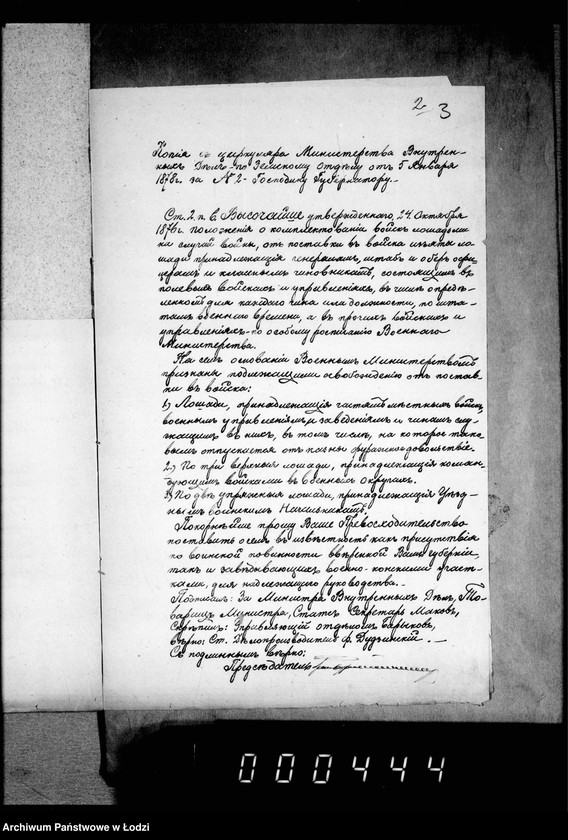 2 3
Копія съ циркуляра Министерства Внутрен-
нихъ Дѣлъ по Земскому Отдѣлу отъ 5 Января
1878 г. за № 2 - Господину Губернатору.-
Ст. 2 п. в. Высочайше утвержденнаго 24 Октября
1876 г. положенія о комплектованіи войскъ лошадьми
на случай войны, отъ поставки въ войска изъяты ло-
шади принадлежащія генераламъ, штабъ и оберъ офи-
церамъ и класнымъ чиновникамъ, состоящимъ въ
полевыхъ войскахъ и управленіяхъ, въ числѣ опредѣ-
ленномъ для каждаго чина или должности, по шта-
тамъ военнаго времени, а въ прочихъ войскахъ и
управленіяхъ - по особому росписанію Военнаго
Министерства.
На семъ основаніи Военнымъ Министерствомъ
признаны подлежащими освобожденію отъ постав-
ки въ войска:
1) Лошади, принадлежащія частямъ мѣстныхъ войскъ,
военнымъ управленіямъ и заведеніямъ и чинамъ слу-
жащимъ въ нихъ, въ томъ числѣ, на которое тако-
вымъ отпускается отъ казны фуражное довольствіе.
2.) По три верховыя лошади, принадлежащія коман-
дующимъ войсками въ Военныхъ Округахъ.
3) По двѣ упряжныя лошади, принадлежащія Уѣзд-
нымъ воинскимъ Начальникамъ.
Покорнѣйше прошу Ваше Превосходительство
поставить о семъ въ извѣстность какъ присутствія
по воинской повинности ввѣренной Вамъ губерніи,
такъ и завѣдывающихъ военно-конскими участ-
ками, для надлежащаго руководства.-
Подписалъ: За Министра Внутреннихъ Дѣлъ, То-
варищъ Министра, Статсъ Секретарь Маковъ,
Скрѣпилъ: Управляющій отдѣломъ Барыковъ,
Вѣрно: Ст. Дѣлопроизводитель ф. Дудзинскій.-
Съ подлиннымъ вѣрно:
Предсѣдатель
000444
Archiwum Państwowe w Łodzi